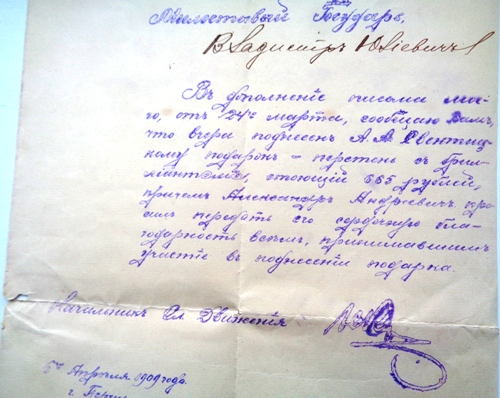 Милостивый Государь,
Владимiръ Юлiевичъ!
Въ дополненiе письма мое-
го, отъ 24го марта, сообщаю Вамъ,
что вчера поднесенъ А. А. Свентиц-
кому подарокъ - перстень съ брил-
лiантомъ, стоющiй 665 рублей,
причемъ Александръ Андреевичъ про-
силъ передать его сердечную бла-
годарность всемъ, принимавшимъ
участiе въ поднесенiи подарка.
Начальникъ Сл. Движенiя
5го Апреля 1909 года.
г.